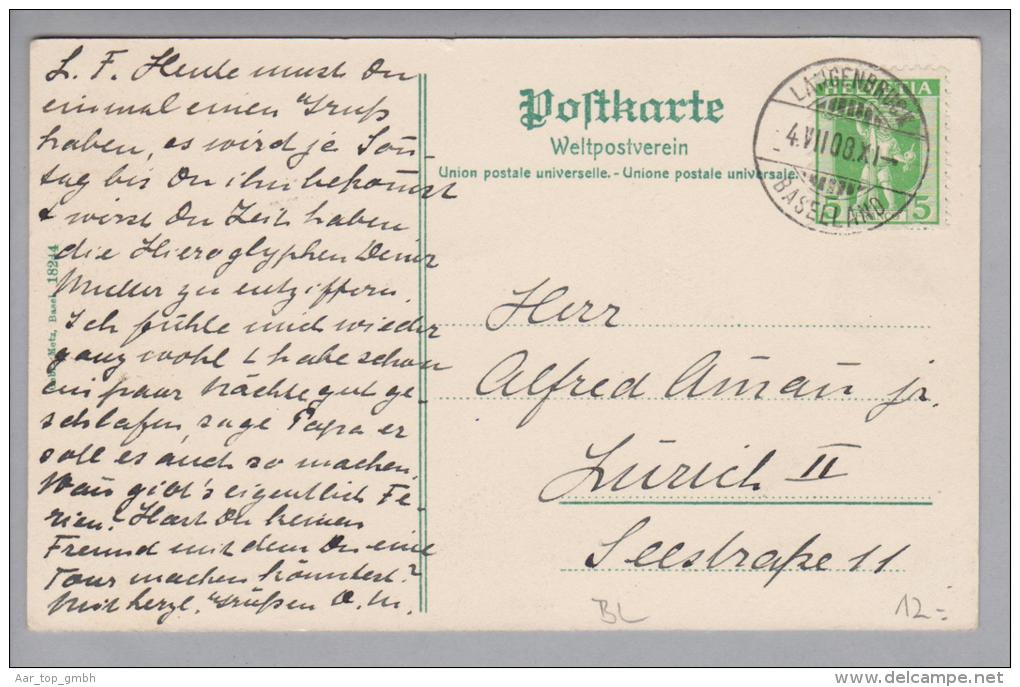 L. F. Heute musst Du
einmal einen Gruß
haben, es wird ja Son-
tag bis Du ihn bekomst
& wirst Du Zeit haben
die Hieroglyphen Deiner
Mutter zu entziffern.
Ich fühle mich wieder
ganz wohl & habe schon
ein paar Nächte gut ge-
schlafen, sage Papa er
soll es auch so machen.
Wan gibt's eigentlich Fe-
rien? Hast Du keinen
Freund mit dem Du eine
Tour machen könntest?
Mit herzl. Grüßen D. M.
Metz, Basel 18244
Postkarte
Weltpostverein
Union postale universelle. - Unione postale universale.
LANGENBRUCK
4.VII.08.XI
BASELLAND
HELVETIA
5 5
Herr
Alfred Aman jr.
Zürich II
Seestraße 11
BL
12.-
Aar_top_gmbh